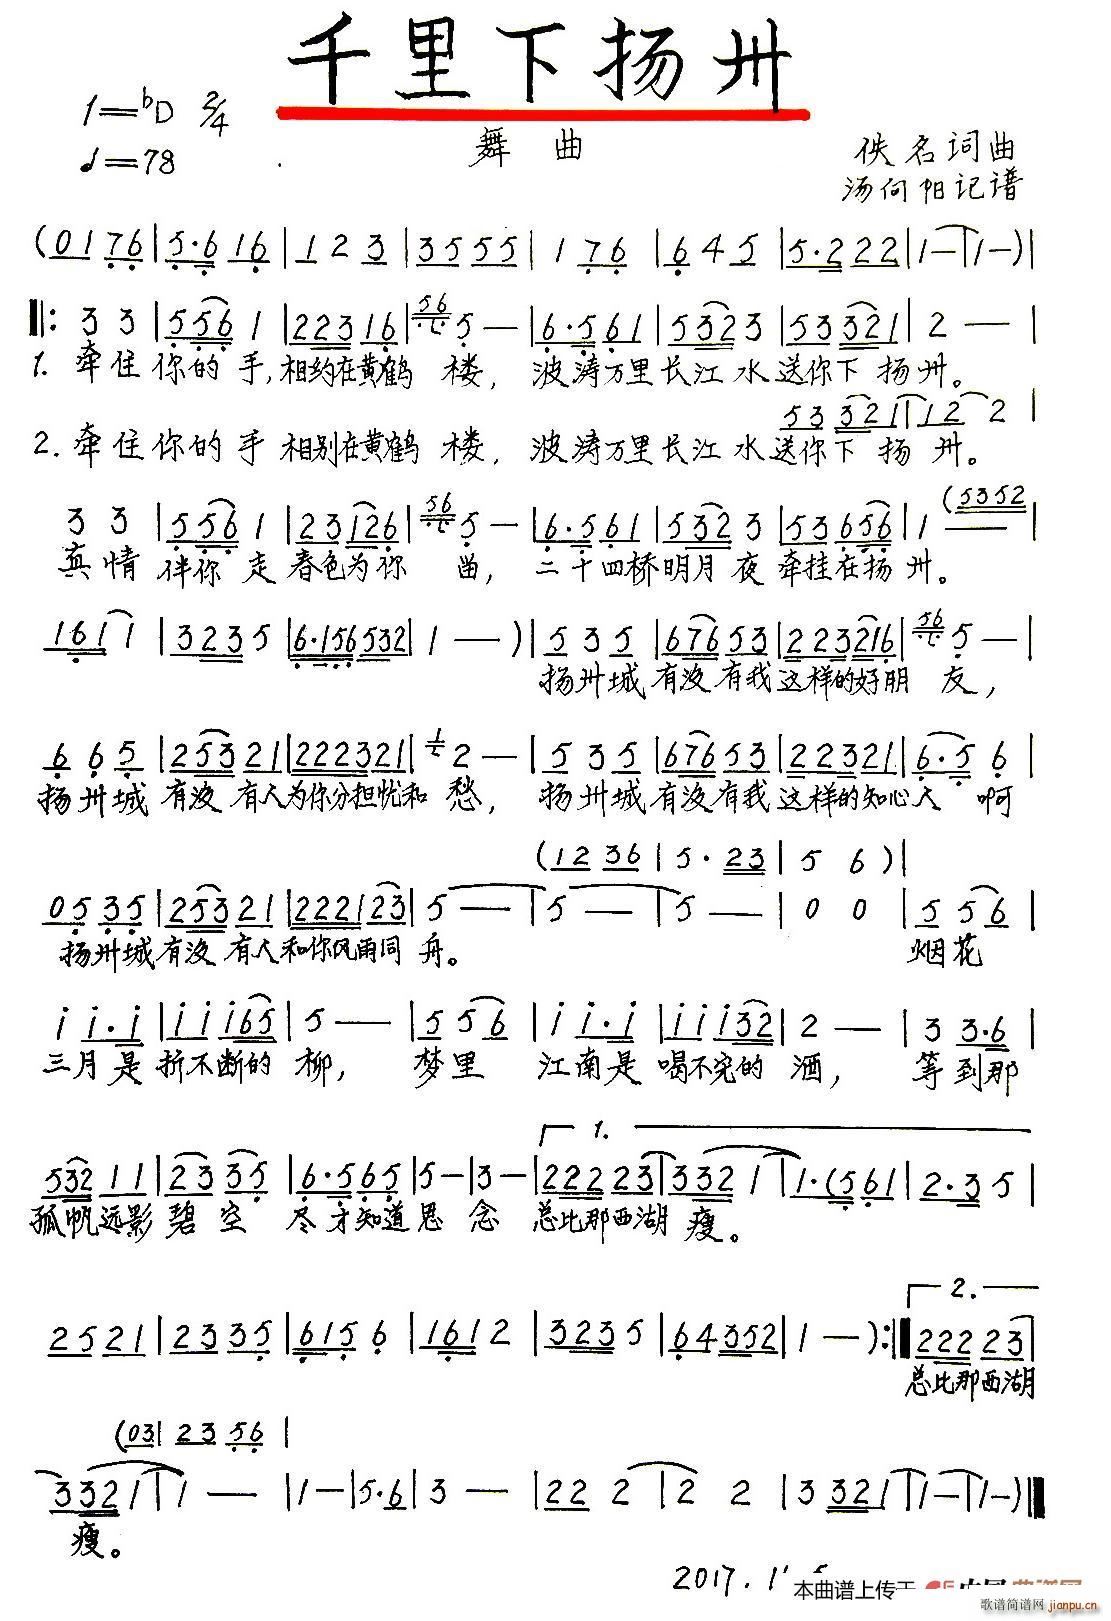 千里下扬州
1=♭D 2/4
♩=78
舞 曲
佚名词曲
汤向阳记谱
(0 1 7 6 | 5·6 1 6 | 1 2 3 | 3 5 5 5 | 1 7 6 | 6 4 5 | 5·2 2 2 | 1 — | 1 — ) |
‖: 3 3 | 5 5 6 1 | 2 2 3 1 6 | 56 5 — | 6·5 6 1 | 5 3 2 3 | 5 3 3 2 1 | 2 — |
1. 牵住你的手,相约在黄鹤楼, 波涛万里长江水送你下扬州。
5 3 3 2 1 | 1 2 2 |
2. 牵住你的手 相别在黄鹤楼, 波涛万里长江水送你下扬州。
(5 3 5 2
3 3 | 5 5 6 1 | 2 3 1 2 6 | 56 5 — | 6·5 6 1 | 5 3 2 3 | 5 3 6 5 6 | 1 — |
真情伴你走春色为你留, 二十四桥明月夜牵挂在扬州。
1 6 1 1 | 3 2 3 5 | 6·1 5 6 5 3 2 | 1 — ) | 5 3 5 | 6 7 6 5 3 | 2 2 3 2 1 6 | 56 5 — |
扬州城有没有我这样的好朋友,
6 6 5 | 2 5 3 2 1 | 2 2 2 3 2 1 | 1 2 — | 5 3 5 | 6 7 6 5 3 | 2 2 3 2 1 | 6·5 6 |
扬州城有没有人为你分担忧和愁, 扬州城有没有我这样的知心人啊
(1 2 3 6 | 5·2 3 | 5 6 ) |
0 5 3 5 | 2 5 3 2 1 | 2 2 2 1 2 3 | 5 — | 5 — | 5 — | 0 0 | 5 5 6 |
扬州城有没有人和你风雨同舟。 烟花
i i·i | i i i 6 5 | 5 — | 5 5 6 | i i·i | i i i 3 2 | 2 — | 3 3·6 |
三月是折不断的柳, 梦里江南是喝不完的酒, 等到那
1.
5 3 2 1 1 | 2 3 3 5 | 6·5 6 5 | 5 — | 3 — | 2 2 2 2 3 | 3 3 2 1 | 1·(5 6 1 | 2·3 5 |
孤帆远影碧空尽才知道思念总比那西湖瘦。
2.
2 5 2 1 | 2 3 3 5 | 6 1 5 6 | 1 6 1 2 | 3 2 3 5 | 6 4 3 5 2 | 1 — ) :‖ 2 2 2 2 3 |
总比那西湖
(0 3 | 2 3 5 6 |
3 3 2 1 | 1 — | 1 — | 5·6 | 3 — | 2 2 2 | 2 2 | 3 3 2 1 | 1 — | 1 — ) ‖
瘦。
2017.
本曲谱上传于
歌谱简谱网
jianpu.cn